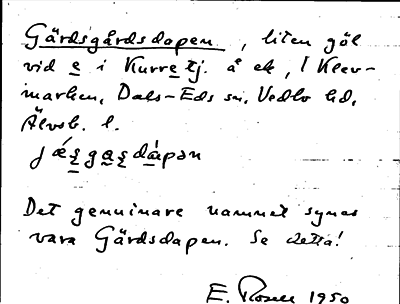 Gärdsgårdsdapen, liten göl
vid e i Kurre tj. å ek, i Klev-
marken, Dals-Eds sn, Vedbo hd,
Älvsb. l.
Det genuinare namnet synes
vara Gärdsdapen. Se detta!
E. 1950